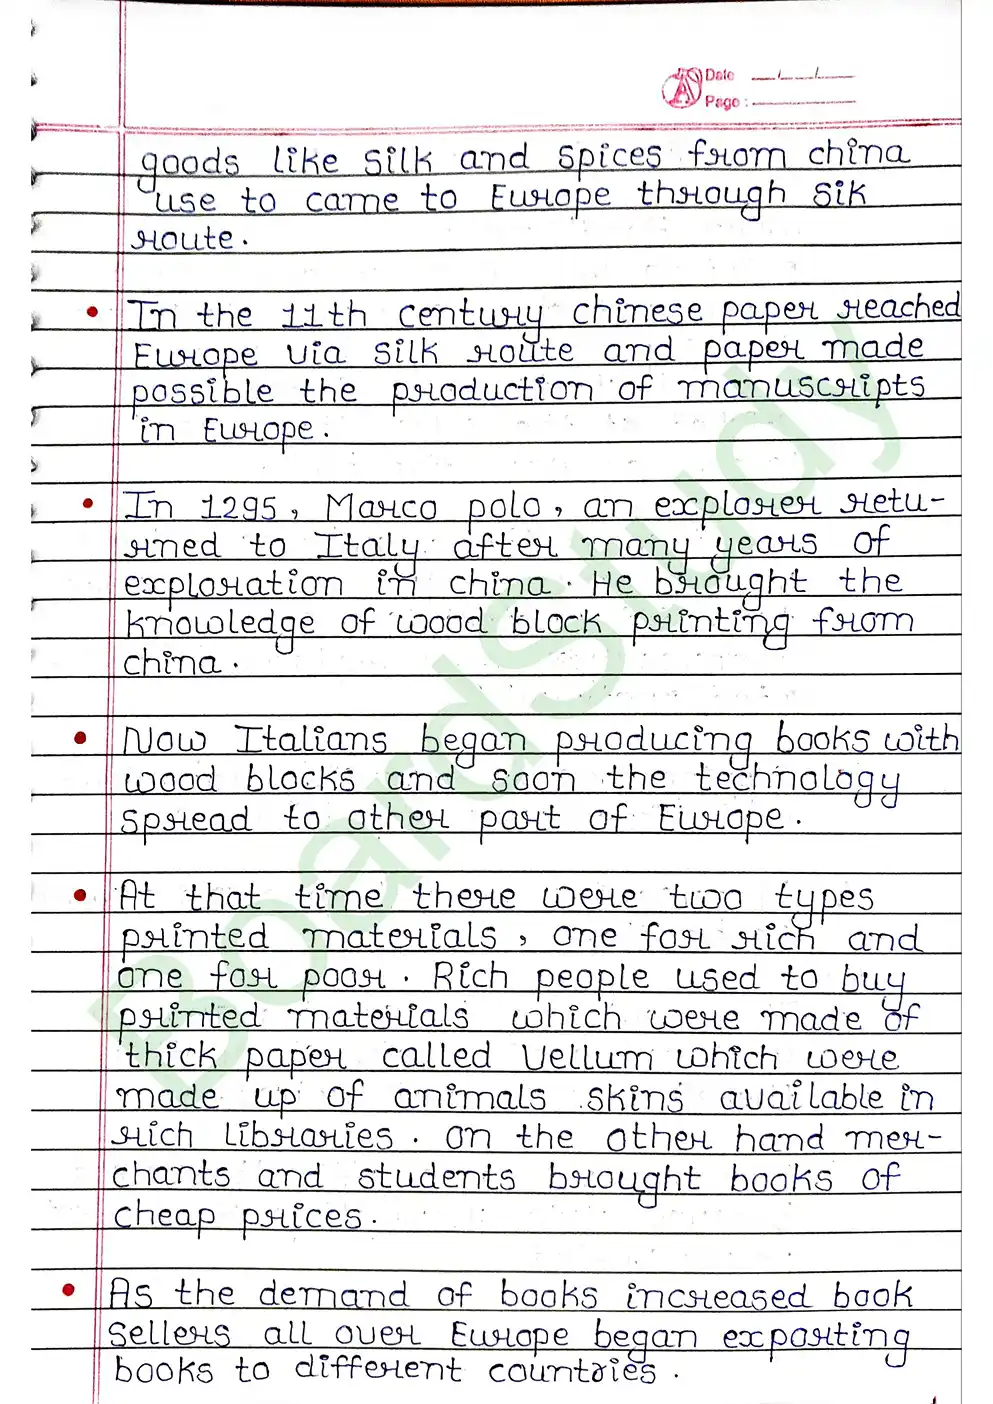 Date __/__/__
Page :
goods like silk and spices from china
use to came to Europe through sik
route.
• In the 11th century chinese paper reached
Europe via silk route and paper made
possible the production of manuscripts
in Europe.
• In 1295, Marco polo, an explorer retu-
rned to Italy after many years of
exploration in china. He brought the
knowledge of wood block printing from
china.
• Now Italians began producing books with
wood blocks and soon the technology
spread to other part of Europe.
• At that time there were two types
printed materials, one for rich and
one for poor. Rich people used to buy
printed materials which were made of
thick paper called Vellum which were
made up of animals skins available in
rich libraries. on the other hand mer-
chants and students brought books of
cheap prices.
• As the demand of books increased book
sellers all over Europe began exporting
books to different countries.
BoardStudy